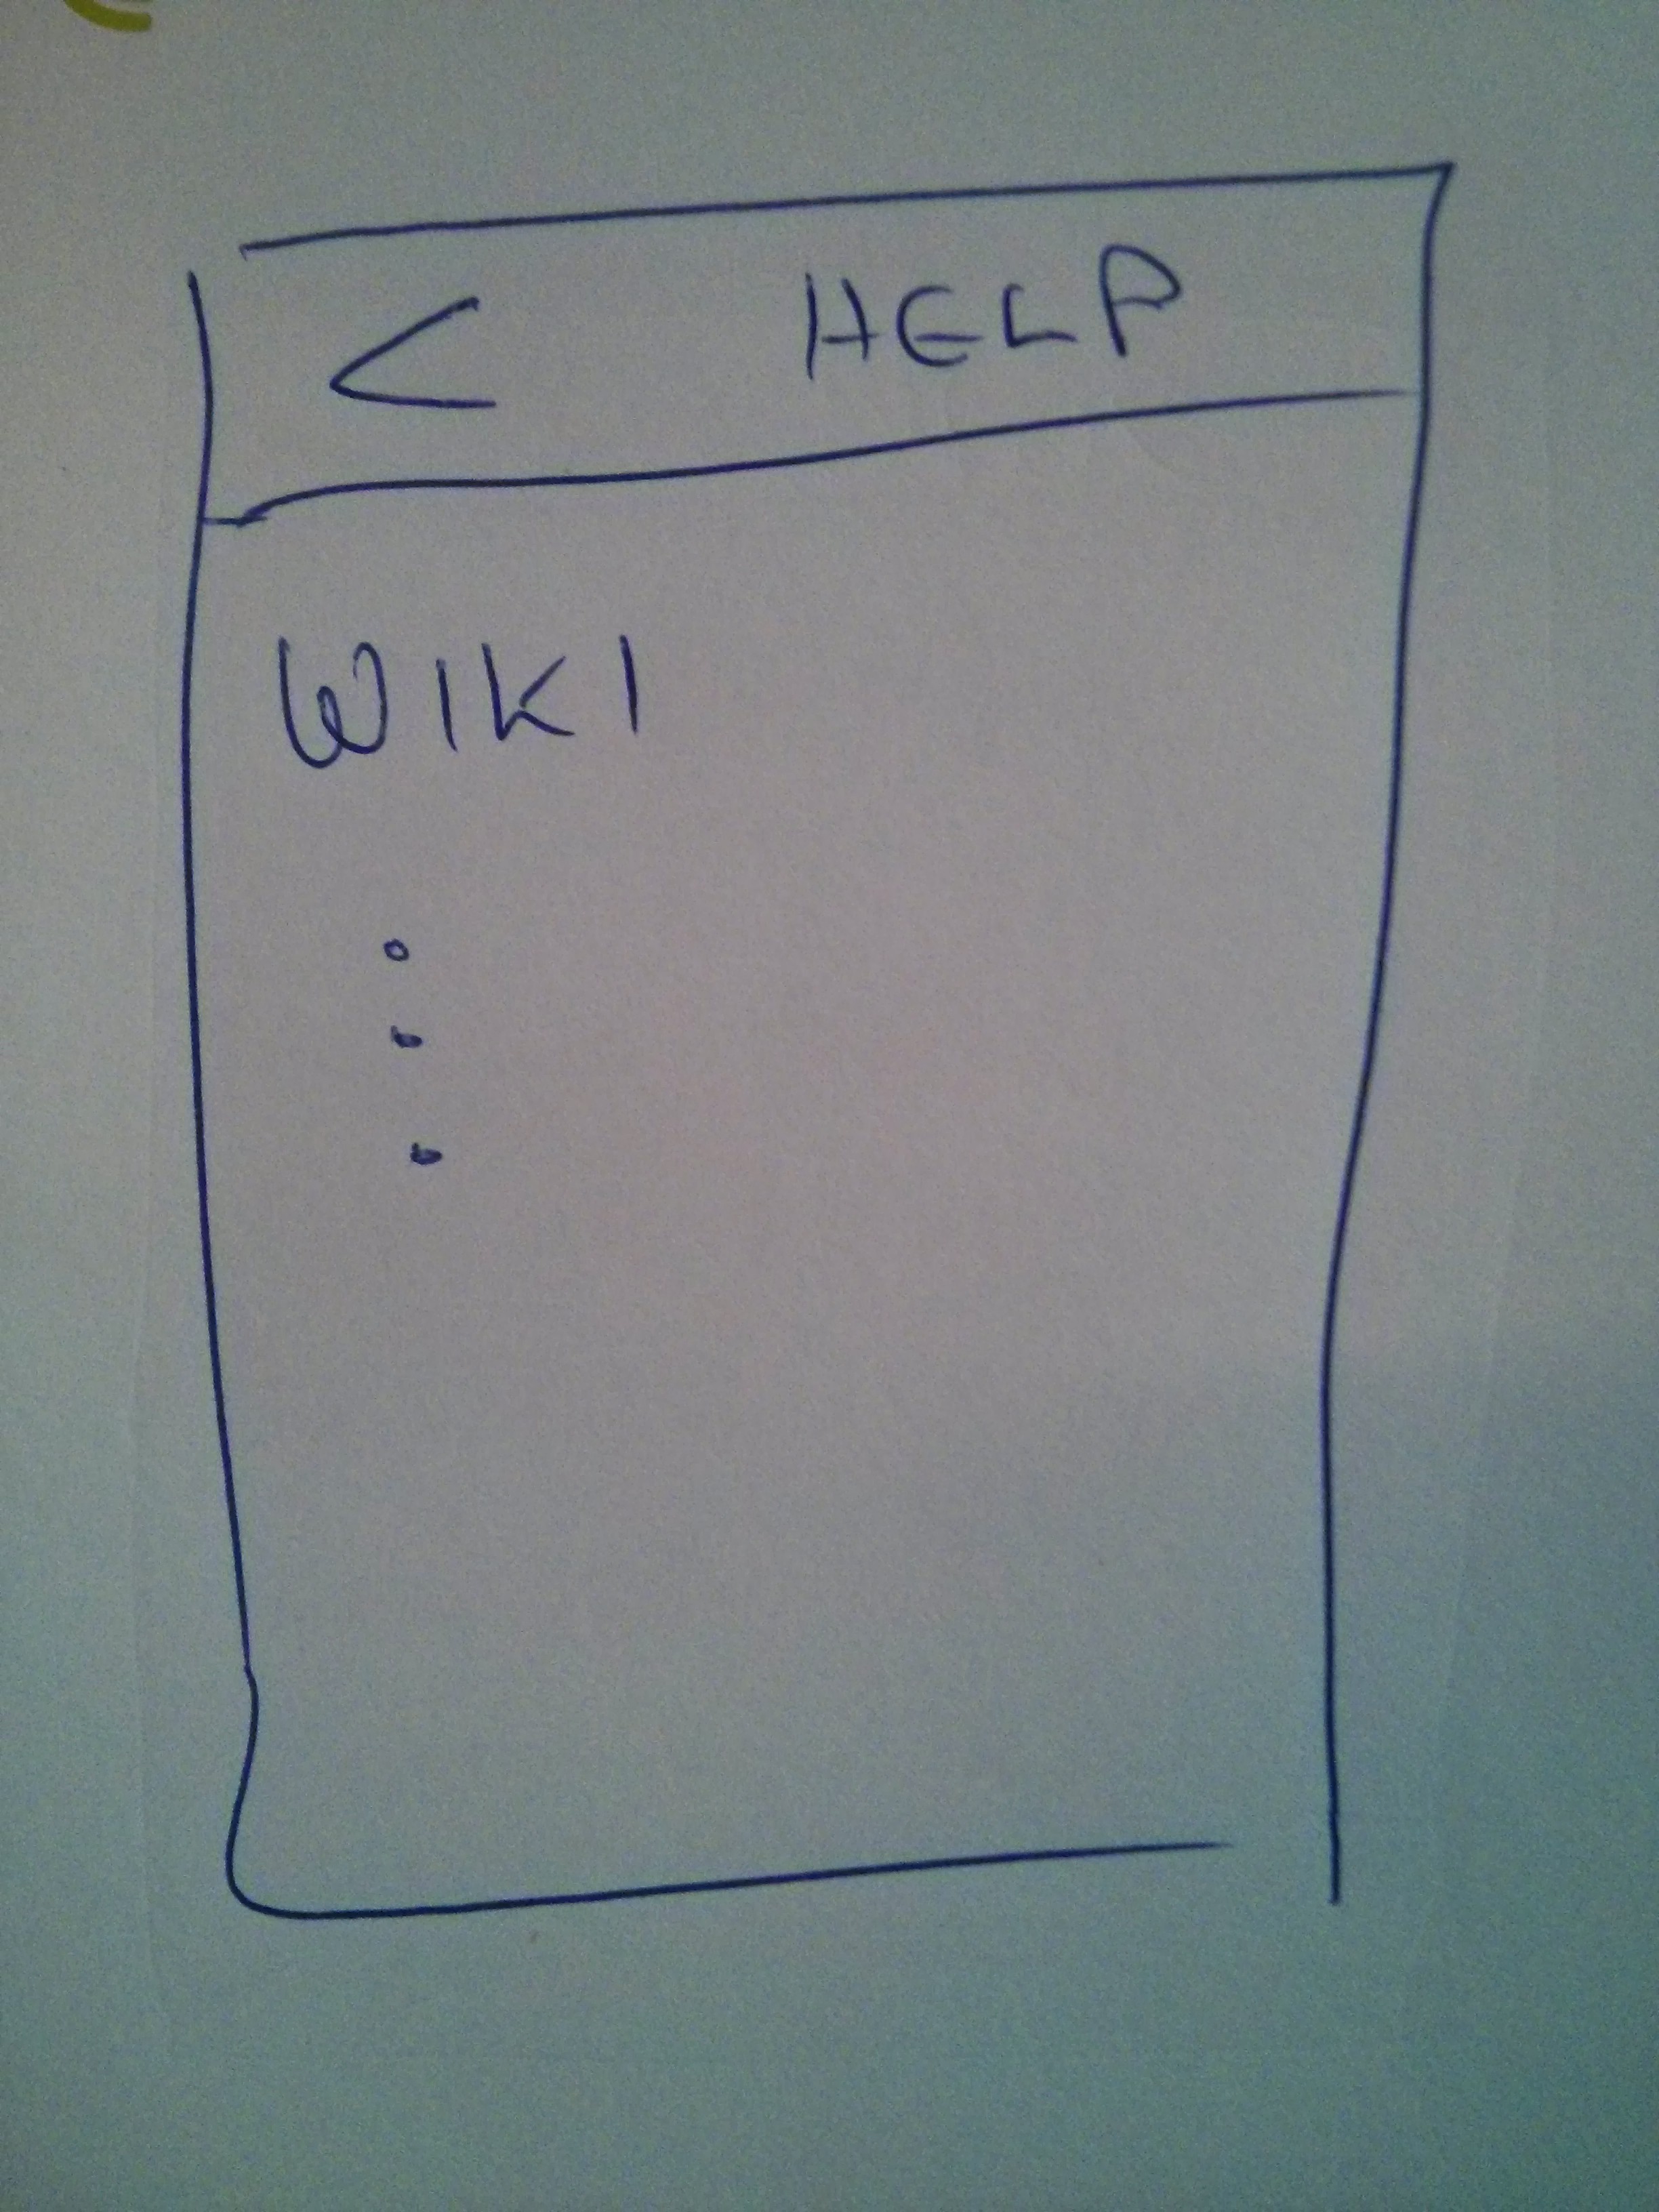 < HELP
WIKI